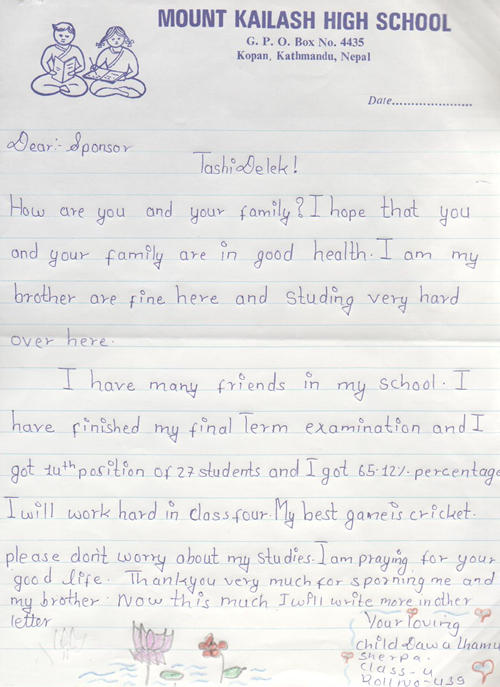 MOUNT KAILASH HIGH SCHOOL
G. P. O. Box No. 4435
Kopan, Kathmandu, Nepal
Date.....................
Dear:- Sponsor
Tashi Delek!
How are you and your family? I hope that you
and your family are in good health. I am my
brother are fine here and studing very hard
over here.
I have many friends in my school. I
have finished my final Term examination and I
got 14th position of 27 students and I got 65.12% percentage
I will work hard in class four. My best game is cricket.
please don't worry about my studies. I am praying for your
good life. Thankyou very much for sporning me and
my brother. Now this much I will write more in other
letter
Your loving
child Dawa Lhamu
Sherpa.
Class - 4
Roll no - 439